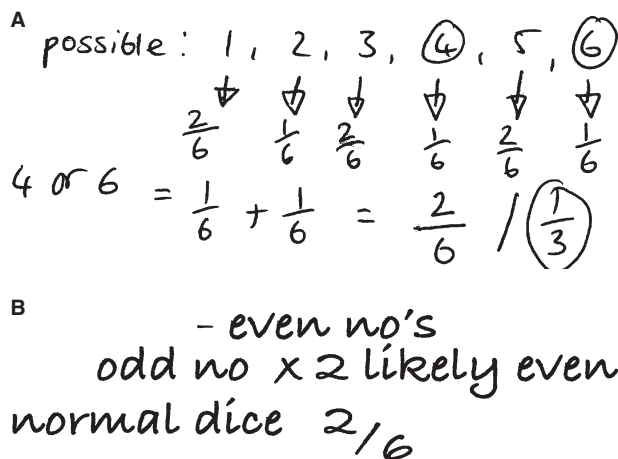 A
possible: 1, 2, 3, 4, 5, 6
2/6 1/6 2/6 1/6 2/6 1/6
4 or 6 = 1/6 + 1/6 = 2/6 / 1/3
B
- even no's
odd no x 2 likely even
normal dice 2/6